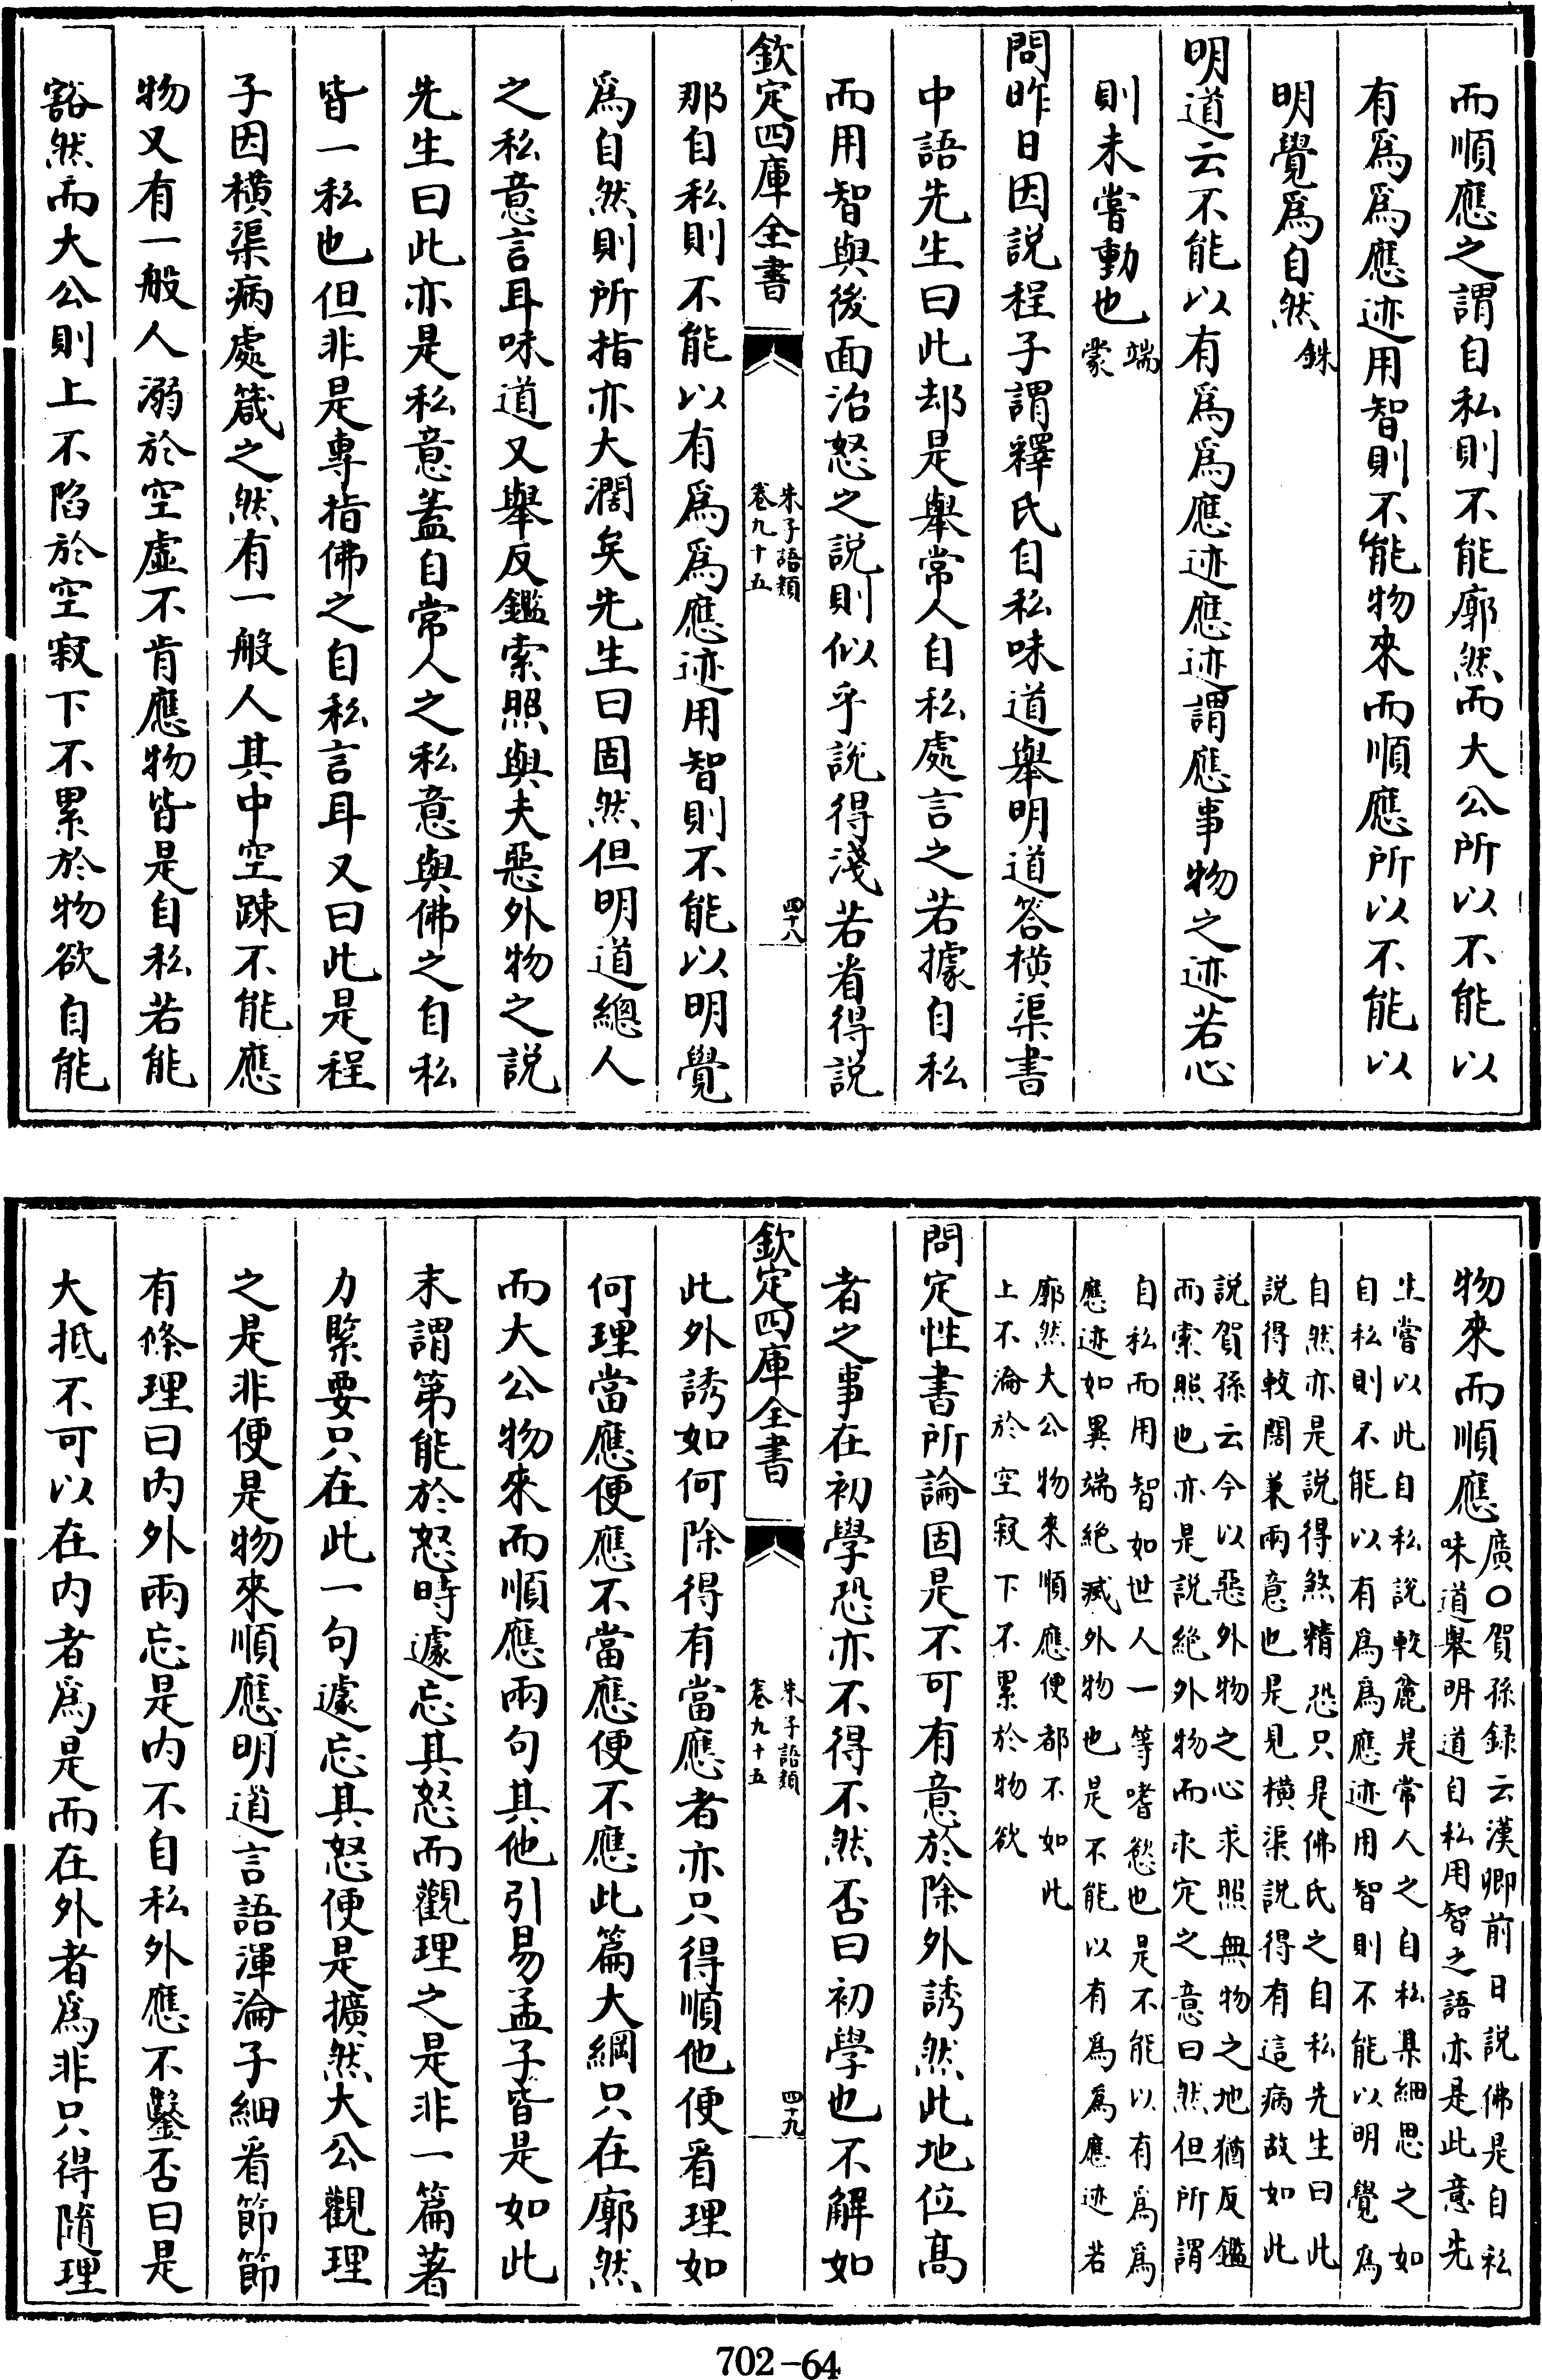 而順應之謂自私則不能廓然而大公所以不能以
有爲爲應迹用智則不能物來而順應所以不能以
明覺爲自然銖
明道云不能以有爲爲應迹應迹謂應事物之迹若心
則未嘗動也端蒙
問昨日因説程子謂釋氏自私味道舉明道答橫渠書
中語先生曰此却是舉常人自私處言之若據自私
而用智與後面治怒之説則似乎説得淺若看得説
欽定四庫全書
朱子語類
卷九十五
四十八
那自私則不能以有爲爲應迹用智則不能以明覺
爲自然則所指亦大濶矣先生曰固然但明道總人
之私意言耳味道又舉反鑑索照與夫惡外物之説
先生曰此亦是私意蓋自常人之私意與佛之自私
皆一私也但非是專指佛之自私言耳又曰此是程
子因橫渠病處箴之然有一般人其中空踈不能應
物又有一般人溺於空虛不肯應物皆是自私若能
豁然而大公則上不陷於空寂下不累於物欲自能
物來而順應廣○賀孫録云漢卿前日説佛是自私
味道舉明道自私用智之語亦是此意先
生嘗以此自私説較麄是常人之自私某細思之如
自私則不能以有爲爲應迹用智則不能以明覺爲
自然亦是説得煞精恐只是佛氏之自私先生曰此
説得較闊兼兩意也是見橫渠説得有這病故如此
説賀孫云今以惡外物之心求照無物之地猶反鑑
而索照也亦是説絶外物而求定之意曰然但所謂
自私而用智如世人一等嗜慾也是不能以有爲爲
應迹如異端絶滅外物也是不能以有爲爲應迹若
廓然大公物來順應便都不如此
上不淪於空寂下不累於物欲
問定性書所論固是不可有意於除外誘然此地位高
者之事在初學恐亦不得不然否曰初學也不解如
欽定四庫全書
朱子語類
卷九十五
四十九
此外誘如何除得有當應者亦只得順他便看理如
何理當應便應不當應便不應此篇大綱只在廓然
而大公物來而順應兩句其他引易孟子皆是如此
末謂第能於怒時遽忘其怒而觀理之是非一篇著
力緊要只在此一句遽忘其怒便是擴然大公觀理
之是非便是物來順應明道言語渾淪子細看節節
有條理曰内外兩忘是内不自私外應不鑿否曰是
大抵不可以在内者爲是而在外者爲非只得隨理
702-64